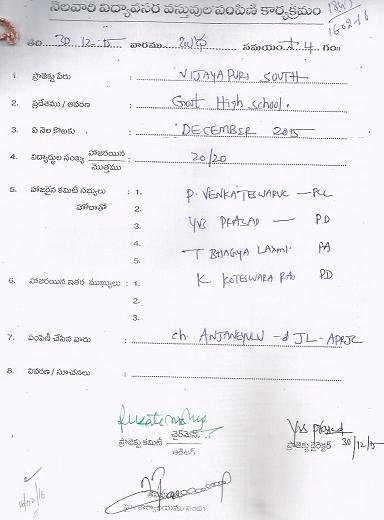 నెలవారీ విద్యావసర వస్తువుల పంపిణి కార్యక్రమం
16-02-16
తేది 30.12.15 వారము బుధ సమయం సా 4 గం॥
1. ప్రాజెక్టు పేరు : VIJAYAPURI SOUTH
2. ప్రదేశము / ఆవరణ : Govt High school.
3. ఏ నెల కొఱకు : DECEMBER 2015
4. విద్యార్థుల సంఖ్య హాజరయిన / మొత్తము : 20/20
5. హాజరైన కమిటీ సభ్యులు : 1. P. VENKATESWARULU - PCC
హోదాతో 2.
3. YVS PRASAD - PD
4.
5. T BHAGYA LAXMI. PA
6. హాజరయిన ఇతర ముఖ్యులు : 1. K KOTESWARA RAO PD
2.
3.
7. పంపిణీ చేసిన వారు : Ch. ANJANEYULU - JL - APRJC
8. వివరణ / సూచనలు :
ప్రాజెక్టు కమిటీ చైర్మెన్ / ఆడిటర్
YVS Prasad
ప్రాజెక్టు డైరెక్టర్ 30/12/15